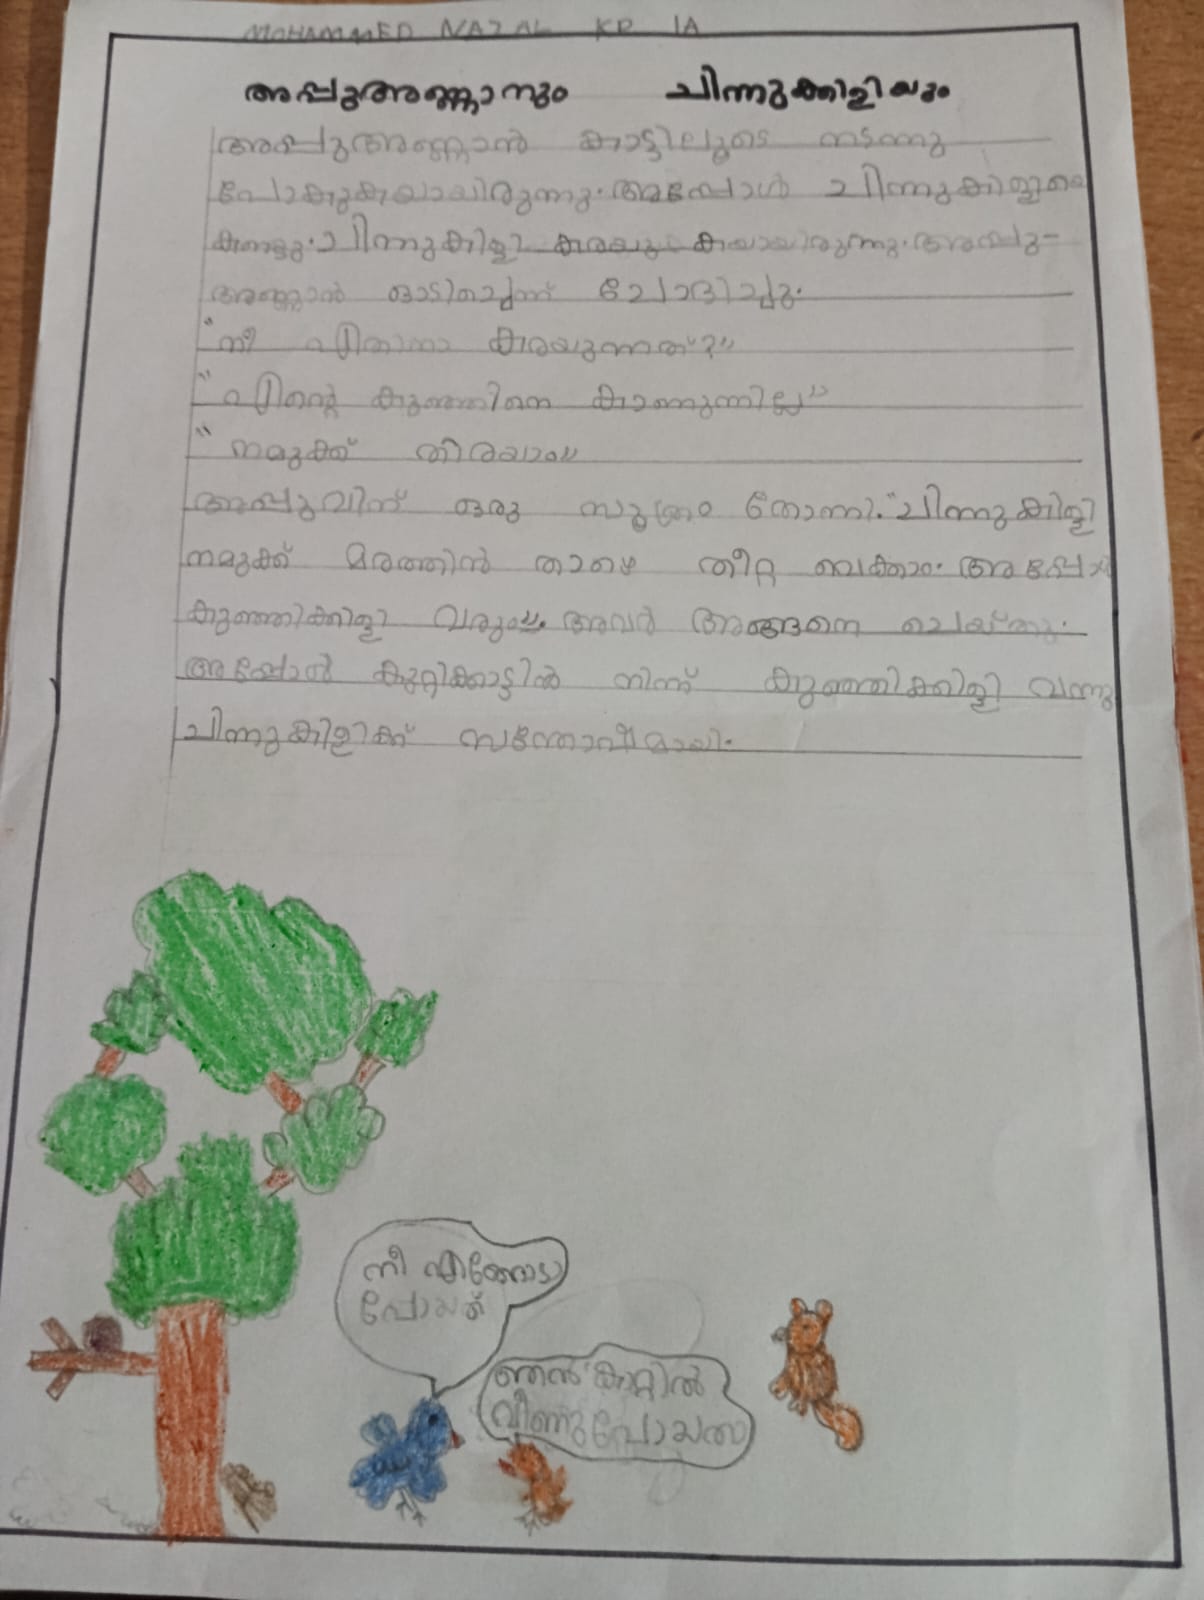 MOHAMMED NAZAL KP 1A
അപ്പുഅണ്ണാനും ചിന്നുക്കിളിയും
അപ്പുഅണ്ണാൻ കാട്ടിലൂടെ നടന്നു
പോകുകയായിരുന്നു. അപ്പോൾ ചിന്നുകിളിയെ
കണ്ടു. ചിന്നുകിളി കരയുകയായിരുന്നു. അപ്പു-
അണ്ണാൻ ഓടിച്ചെന്ന് ചോദിച്ചു.
"നീ എന്തിനാ കരയുന്നത്?"
"എന്റെ കുഞ്ഞിനെ കാണുന്നില്ല"
"നമുക്ക് തിരയാം"
അപ്പുവിന് ഒരു സൂത്രം തോന്നി. "ചിന്നുകിളി
നമുക്ക് മരത്തിൻ താഴെ തീറ്റ വെക്കാം. അപ്പോൾ
കുഞ്ഞിക്കിളി വരും". അവർ അങ്ങനെ ചെയ്തു.
അപ്പോൾ കുറ്റിക്കാട്ടിൽ നിന്ന് കുഞ്ഞിക്കിളി വന്നു
ചിന്നുകിളിക്ക് സന്തോഷമായി.
നീ എങ്ങോടാ
പോയത്
ഞൻ കാറ്റിൽ
വീണുപോയതാ